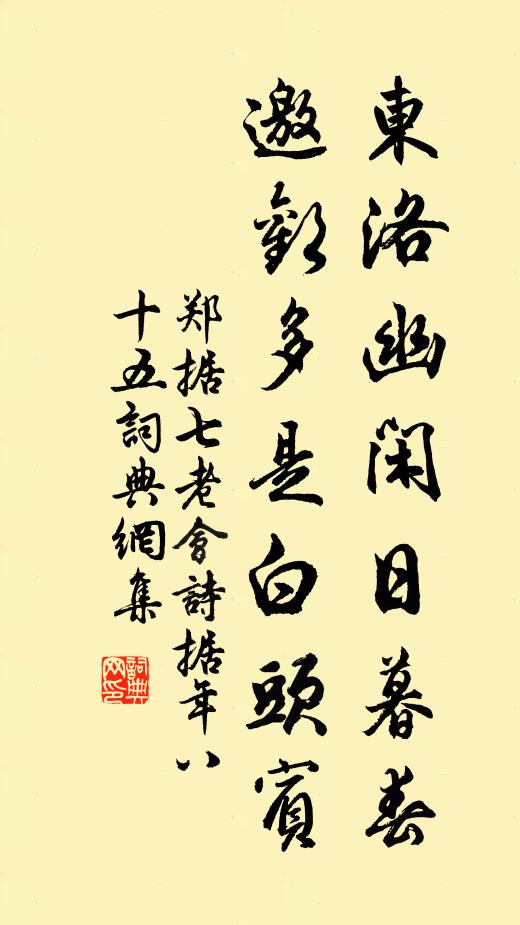 東洛幽閑日暮春
邀歡多是白頭賓
郑据七老會詩据年八
十五詞典網集
詞典網印